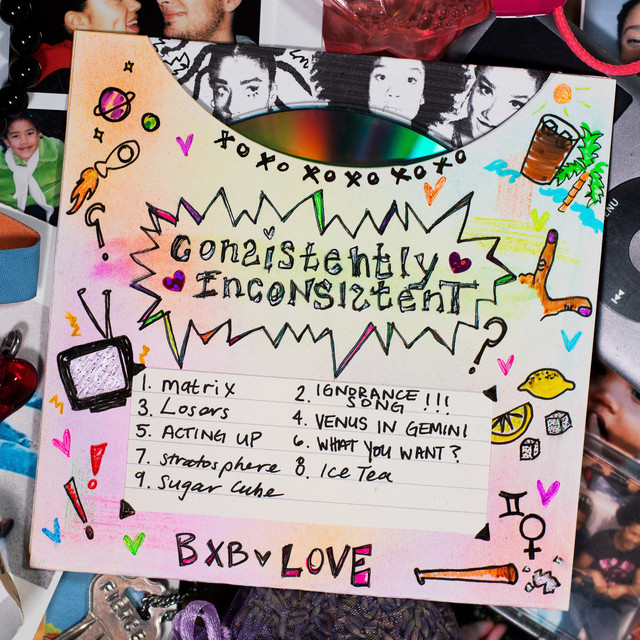 XO XO XO XO XO XO
MENU
Consistently
InConsistent
1. Matrix
2. IGNORANCE
SONG !!!
3. Losers
4. VENUS IN GEMINI
5. ACTING UP
6. WHAT YOU WANT?
7. stratosphere
8. Ice Tea
9. Sugar Cube
BXB LOVE